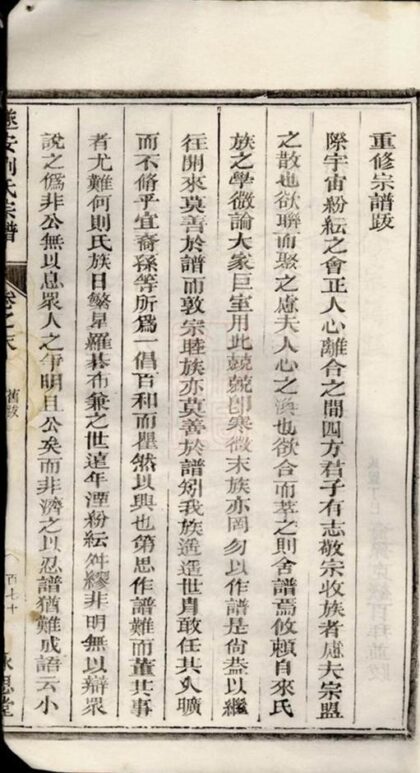 重修宗譜跋
際宇宙紛紜之會正人心離合之間四方君子有志敬宗收族者慮夫宗盟
之散也欲聯而聚之慮夫人心之渙也欲合而萃之則舍譜焉攸賴自來氏
族之學微論大家巨室用此兢兢卽寒微末族亦罔勿以作譜是尙葢以繼
往開來莫善於譜而敦宗睦族亦莫善於譜矧我族遙遙世胄敢任其久曠
而不脩乎宜裔孫等所爲一倡百和而瞿然以興也第思作譜難而董其事
者尤難何則氏族日繁星羅棊布兼之世遠年湮紛紜舛繆非明無以辯眾
說之僞非公無以息眾人之爭明且公矣而非濟之以忍譜猶難成語云小
遂安劉氏宗譜
卷之末
舊跋
百七十